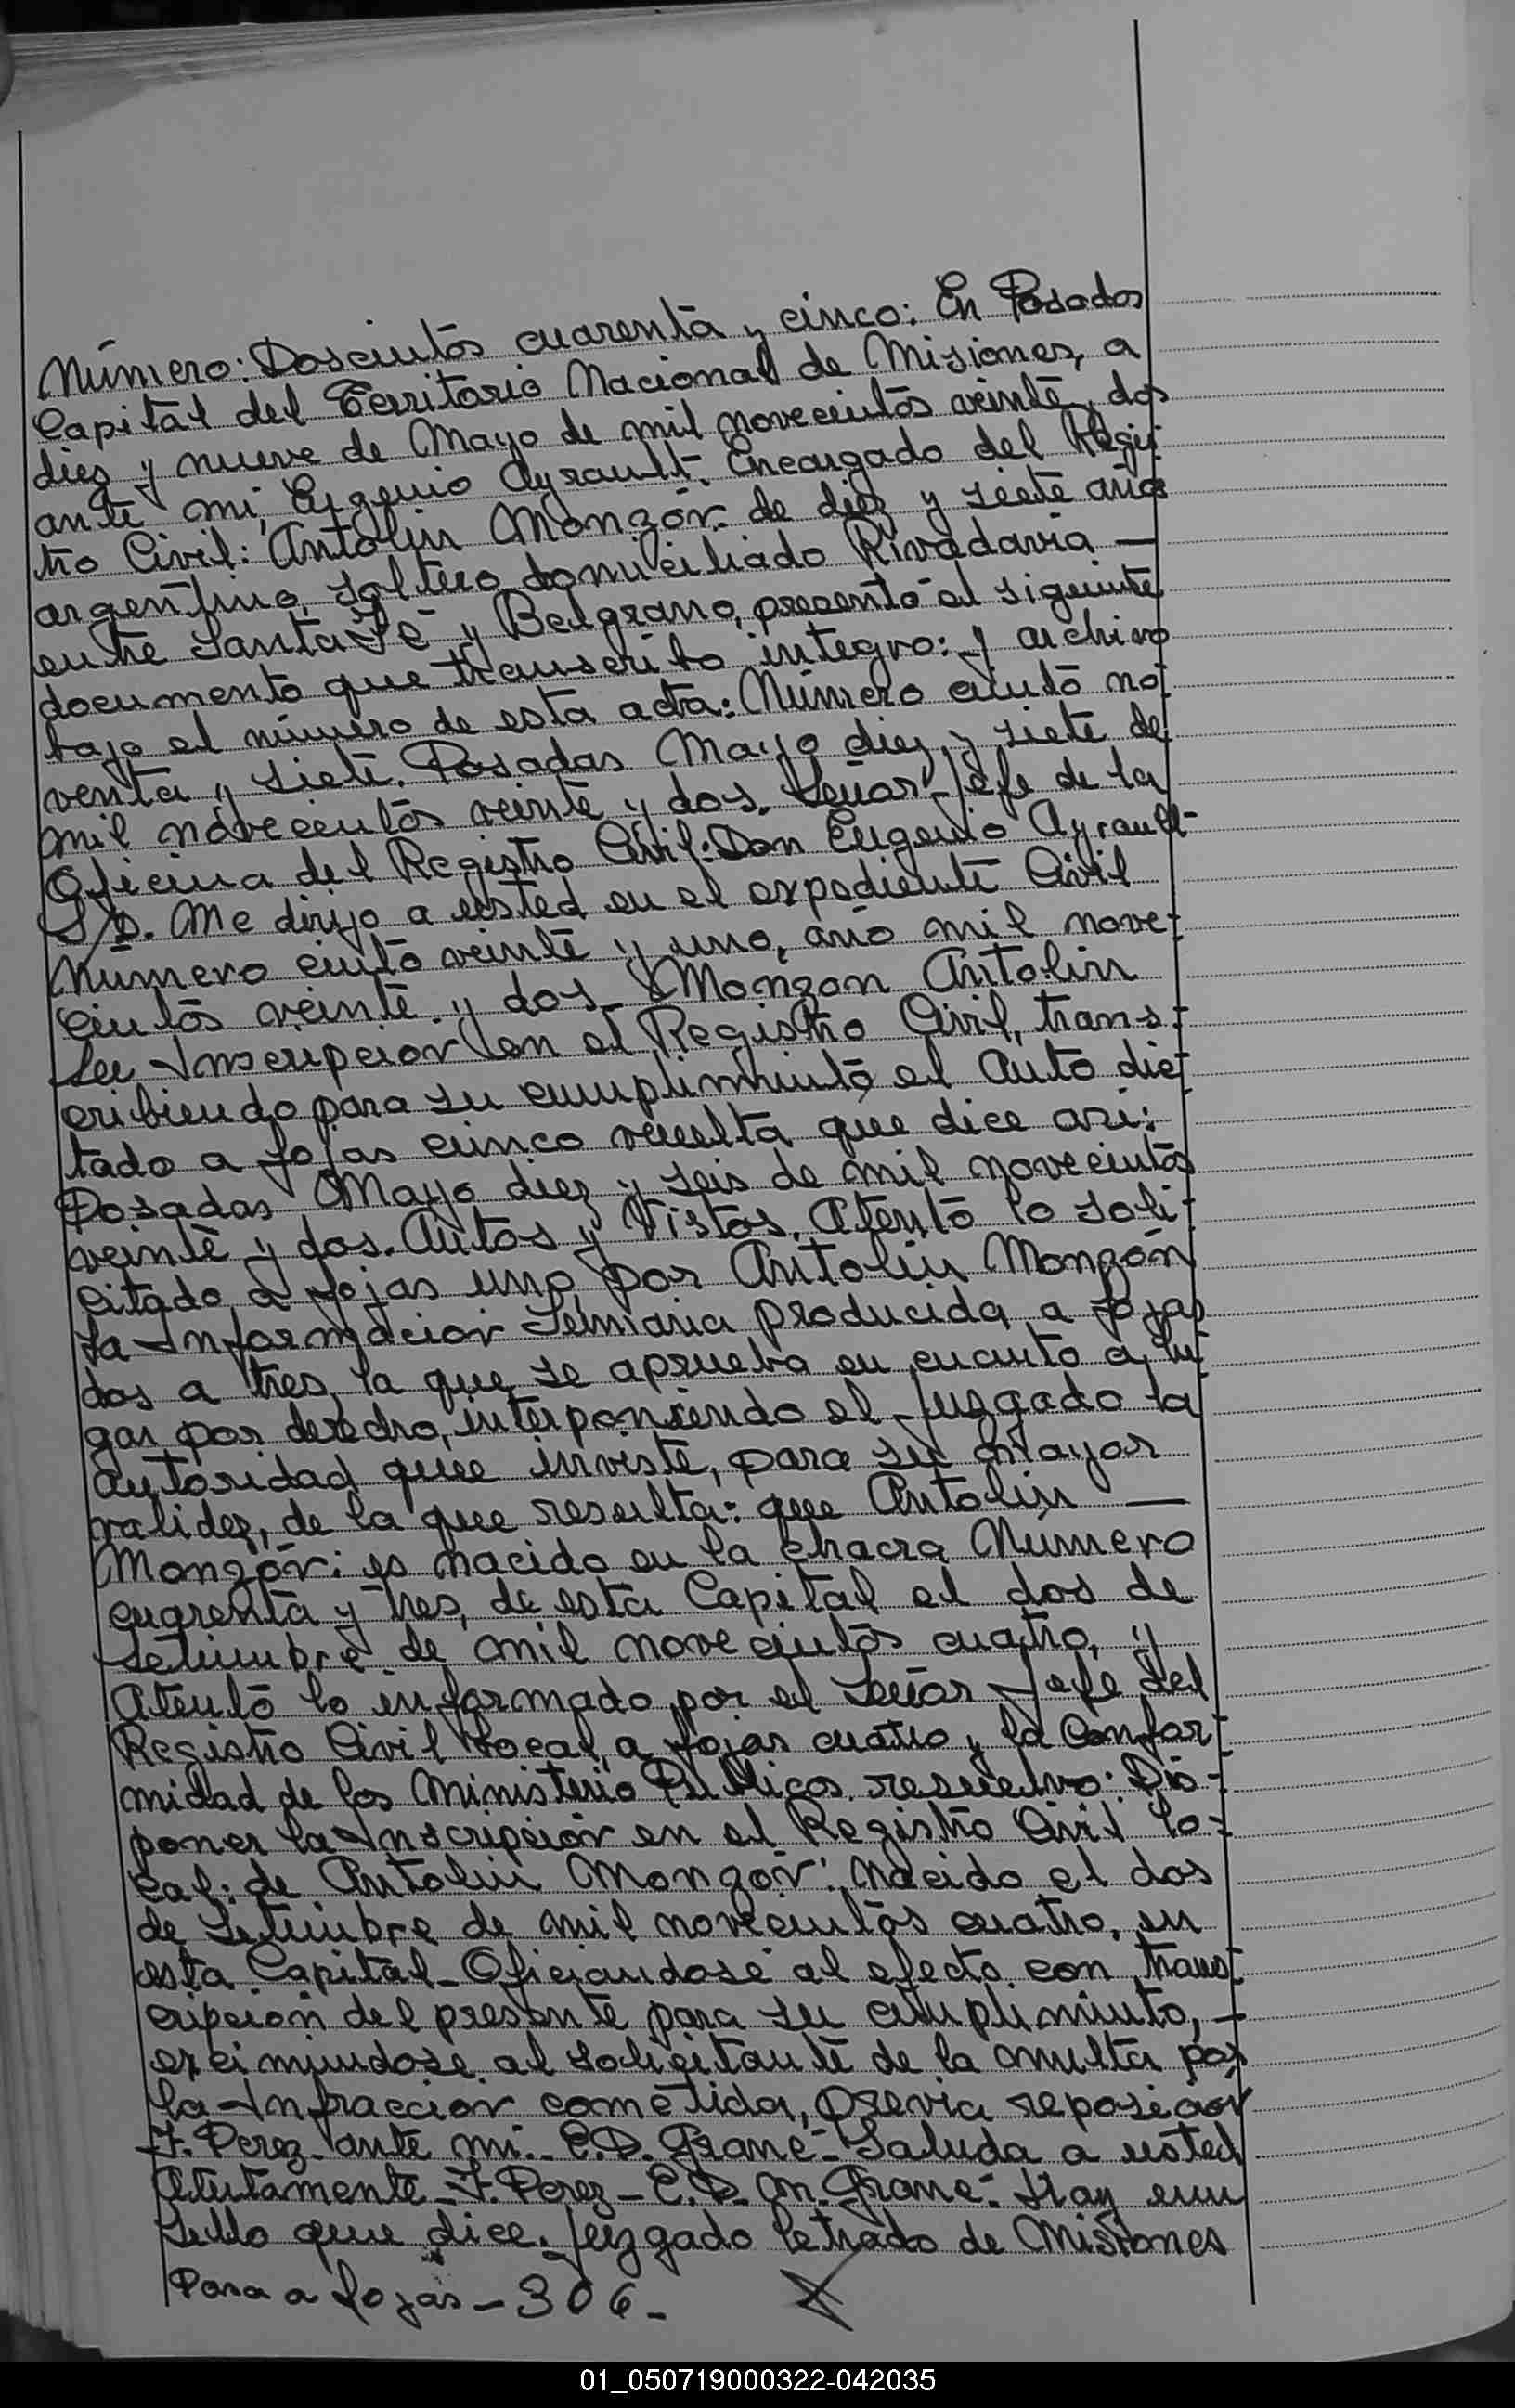 Número: Doscientos cuarenta y cinco: En Posadas
Capital del Territorio Nacional de Misiones, a
diez y nueve de Mayo de mil novecientos veinte, dos
ante mi, Eugenio Ayrault. Encargado del Regis-
tro Civil: Antolin Monzón. de diez y siete años
argentino, soltero, domiciliado Rivadavia —
entre Santa Fé y Belgrano, presentó el siguiente
documento que transcrito integro: y archivo
bajo el número de esta acta: Número ciento no-
venta y siete. Posadas Mayo diez y siete de
mil novecientos veinte y dos. Señor Jefe de la
Oficina del Registro Civil: Don Eugenio Ayrault-
S/D. Me dirijo a usted en el expediente Civil
Número ciento veinte y uno, año mil nove-
cientos veinte y dos Monzon Antolin
su Inscripcion en el Registro Civil, trans-
cribiendo para su cumplimiento el auto dic-
tado a fojas cinco vuelta que dice asi:
Posadas Mayo diez y seis de mil novecientos
veinte y dos. Autos y Vistos. Atento lo soli-
citado a fojas uno por Antolin Monzón
la Informacion Sumaria producida a fojas
dos a tres, la que se aprueba en cuanto a lu-
gar por derecho, interponiendo el Juzgado la
autoridad que inviste, para su mayor
validez, de la que resulta: que Antolin —
Monzón: es nacido en la chacra Número
cuarenta y tres, de esta Capital el dos de
Setiembre de mil novecientos cuatro, y
Atento lo informado por el Señor Jefe del
Registro Civil Local, a fojas cuatro y la Confor-
midad de los Ministerio Publicos. resuelvo: Dis-
poner la Inscripción en el Registro Civil lo-
cal: de Antolin Monzón: nacido el dos
de Setiembre de mil novecientos cuatro, en
esta Capital- Oficiandose al efecto con trans-
cripción del presente para su cumplimiento, -
eximiendose al solicitante de la multa por
la Infraccion cometida, previa reposicion
J. Perez ante mi. E.D. Grané- Saluda a usted
Atentamente- J. Perez- E.D. M. Grané- Hay un
Sello que dice. Juzgado Letrado de Misiones
Pasa a fojas - 306 -
01_050719000322-042035